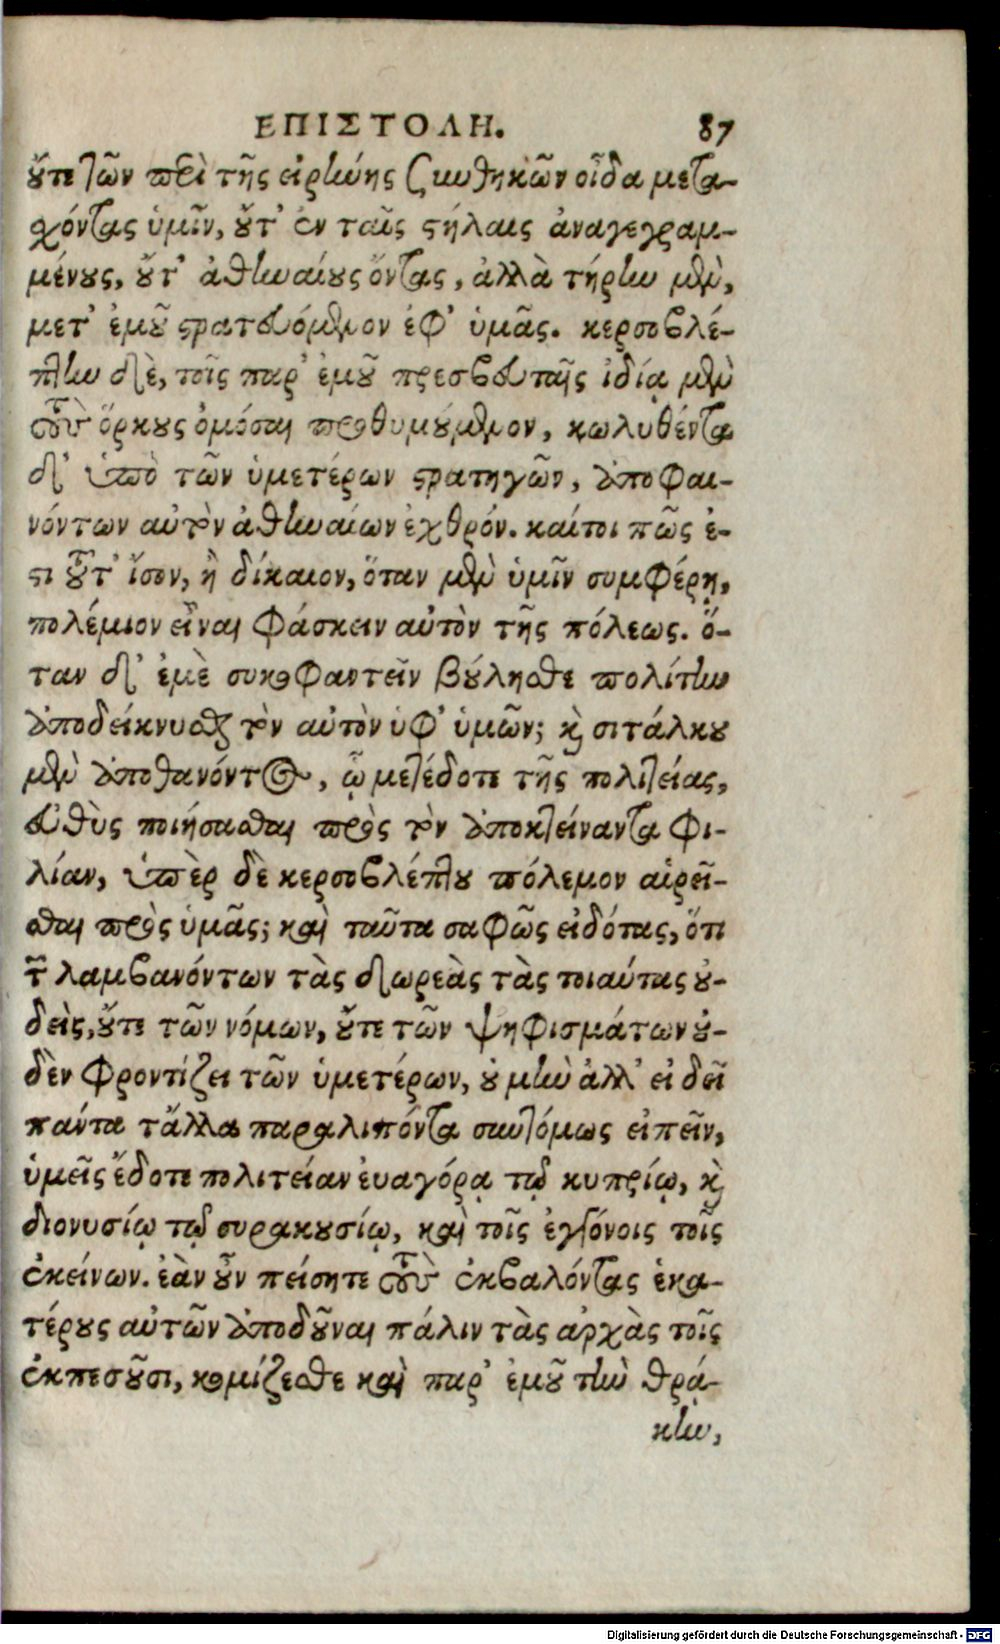 ΕΠΙΣΤΟΛΗ. 87
ȣ̓́τε τῶν περὶ τῆς εἰρήνης συνθηκῶν οἶδα μετα-
χόντας ὑμῖν, ȣ̓́τ' ἐν ταῖς στήλαις ἀναγεγραμ-
μένȣς, ȣ̓́τ' ἀθηναίȣς ὄντας, ἀλλὰ τήρην μὲν,
μετ' ἐμȣ͂ στρατευόμενον ἐφ' ὑμᾶς. κερσοβλέ-
πτην δὲ, τοῖς παρ' ἐμȣ͂ πρεσβευταῖς ἰδίᾳ μὲν
τοὺς ὅρκȣς ὀμόσαι προθυμȣ́μενον, κωλυθέντα
δ' ὑπὸ τῶν ὑμετέρων στρατηγῶν, ἀποφαι-
νόντων αὐτὸν ἀθηναίων ἐχθρόν. καίτοι πῶς ἐ-
στι τȣ͂τ' ἴσον, ἢ δίκαιον, ὅταν μὲν ὑμῖν συμφέρῃ,
πολέμιον εἶναι φάσκειν αὐτὸν τῆς πόλεως. ὅ-
ταν δ' ἐμὲ συκοφαντεῖν βȣ́λησθε πολίτην
ἀποδείκνυσθαι τὸν αὐτὸν ὑφ' ὑμῶν; καὶ σιτάλκȣ
μὲν ἀποθανόντος, ᾧ μετέδοτε τῆς πολιτείας,
εὐθὺς ποιήσασθαι πρὸς τὸν ἀποκτείναντα φι-
λίαν, ὑπὲρ δὲ κερσοβλέπτȣ πόλεμον αἱρεῖ-
σθαι πρὸς ὑμᾶς; καὶ ταῦτα σαφῶς εἰδότας, ὅτι
τῶν λαμβανόντων τὰς δωρεὰς τὰς τοιαύτας ȣ̓-
δεὶς, ȣ̓́τε τῶν νόμων, ȣ̓́τε τῶν ψηφισμάτων ȣ̓-
δὲν φροντίζει τῶν ὑμετέρων, ȣ̓ μὴν ἀλλ' εἰ δεῖ
πάντα τἄλλα παραλιπόντα συντόμως εἰπεῖν,
ὑμεῖς ἔδοτε πολιτείαν ἐυαγόρᾳ τῷ κυπρίῳ, καὶ
διονυσίῳ τῷ συρακȣσίῳ, καὶ τοῖς ἐγγόνοις τοῖς
ἐκείνων. ἐὰν ȣ̓͂ν πείσητε τοὺς ἐκβαλόντας ἑκα-
τέρȣς αὐτῶν ἀποδȣ͂ναι πάλιν τὰς ἀρχὰς τοῖς
ἐκπεσȣ͂σι, κομίζεσθε καὶ παρ' ἐμȣ͂ τὴν θρᾴ-
κην,
Digitalisierung gefördert durch die Deutsche Forschungsgemeinschaft - DFG